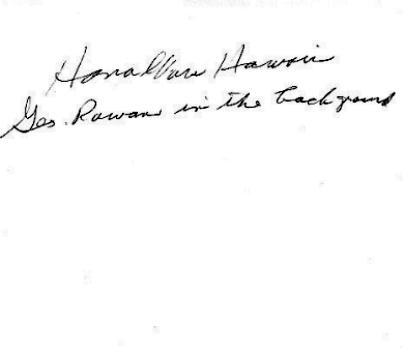 Honolulu Hawaii
Geo. Rowan in the background